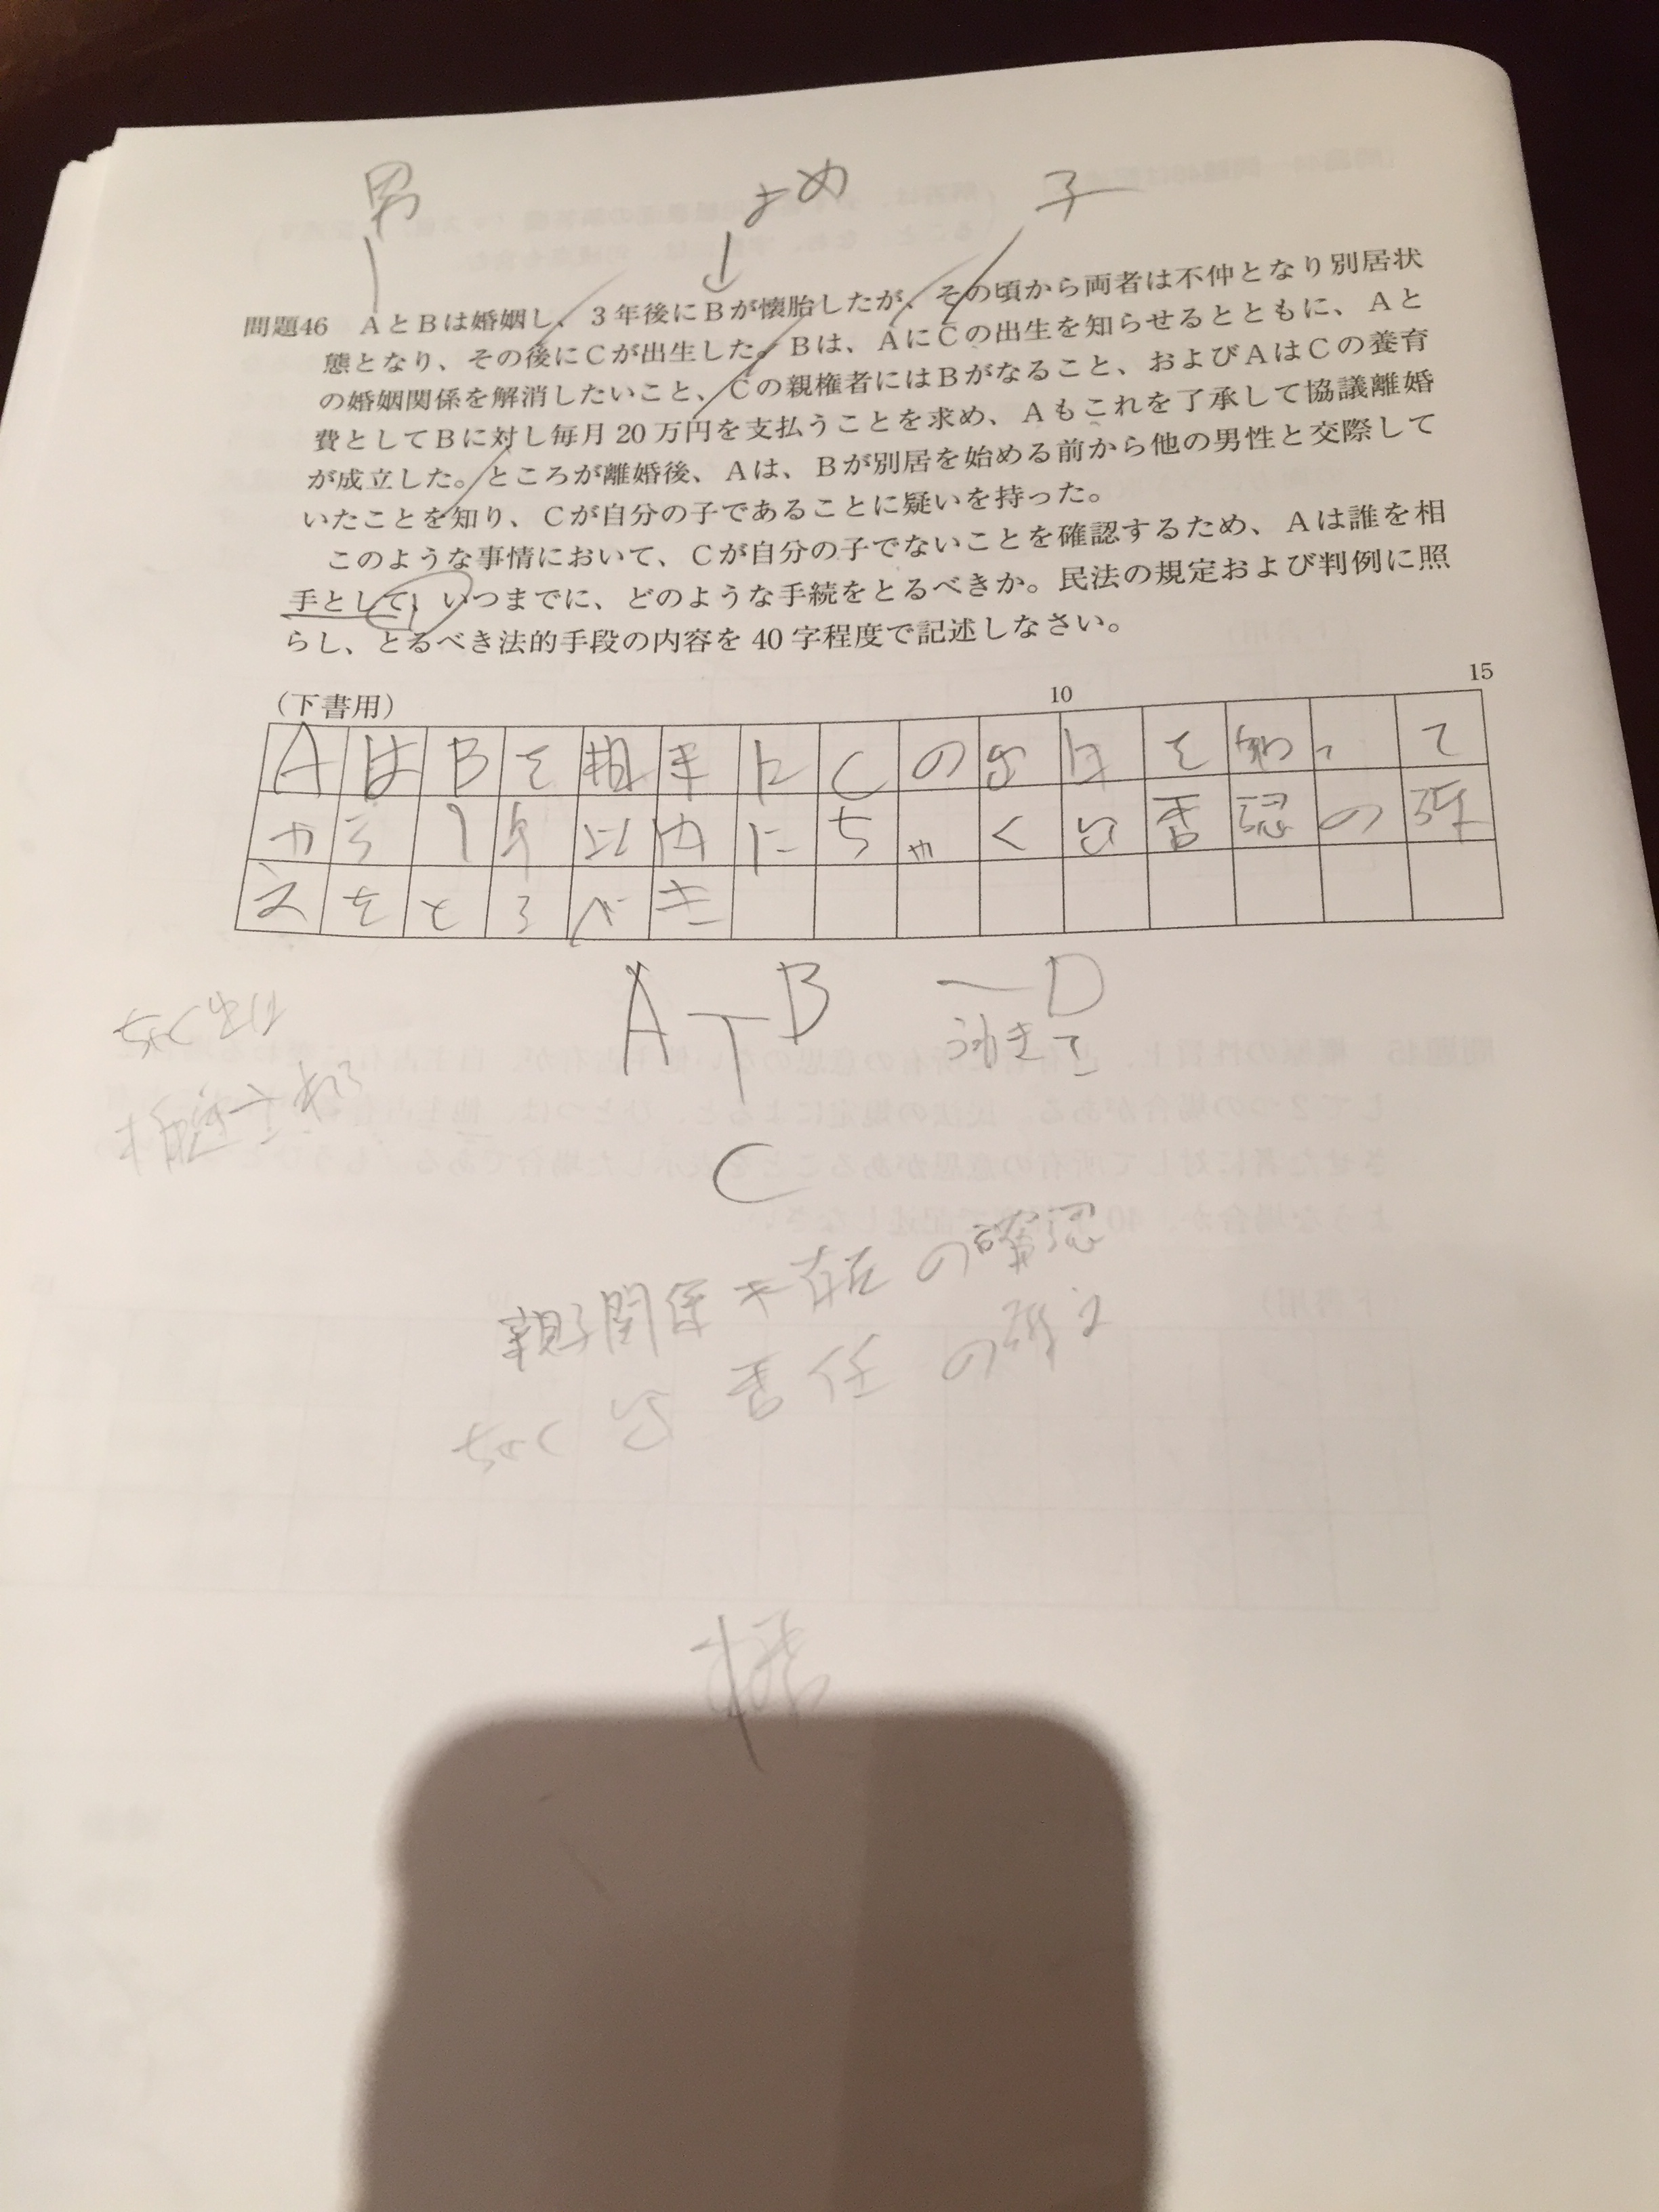 男 よめ 子
問題46 AとBは婚姻し、3年後にBが懐胎したが、その頃から両者は不仲となり別居状
態となり、その後にCが出生した。Bは、AにCの出生を知らせるとともに、Aと
の婚姻関係を解消したいこと、Cの親権者にはBがなること、およびAはCの養育
費としてBに対し毎月20万円を支払うことを求め、Aもこれを了承して協議離婚
が成立した。ところが離婚後、Aは、Bが別居を始める前から他の男性と交際して
いたことを知り、Cが自分の子であることに疑いを持った。
このような事情において、Cが自分の子でないことを確認するため、Aは誰を相
手として、いつまでに、どのような手続をとるべきか。民法の規定および判例に照
らし、とるべき法的手段の内容を40字程度で記述しなさい。
(下書用) 10 15
AはBを相手にCの出生を知って
から1年以内にちゃく出否認の訴
えをとるべき
A B ー D
うわきて
ちゃく出は
推定される
C
親子関係不存在の確認
ちゃく出否任の訴え